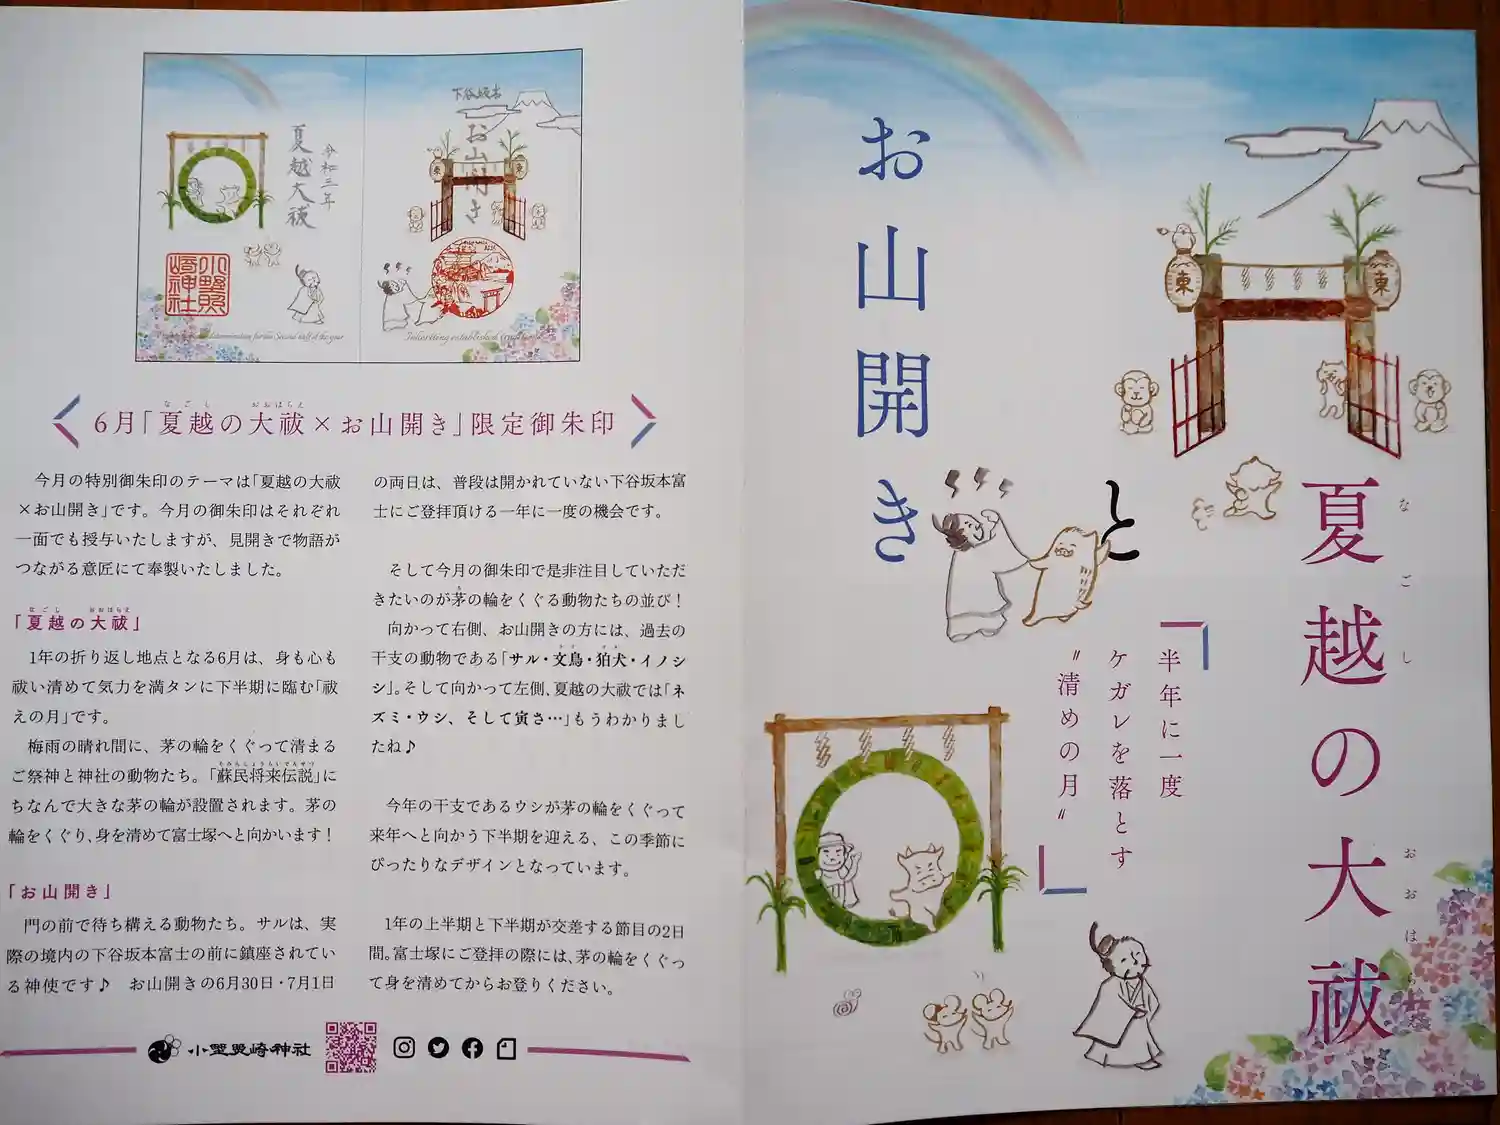 夏越の大祓
なごし
おおはらえ
と
お山開き
半年に一度
ケガレを落とす
〝清めの月〟
東
東
下谷坂本
お山開き
令和三年
夏越大祓
小野照
崎神社
東
東
6月「夏越の大祓×お山開き」限定御朱印
なごし
おおはらえ
今月の特別御朱印のテーマは「夏越の大祓
×お山開き」です。今月の御朱印はそれぞれ
一面でも授与いたしますが、見開きで物語が
つながる意匠にて奉製いたしました。
「夏越の大祓」
なごし
おおはらえ
1年の折り返し地点となる6月は、身も心も
祓い清めて気力を満タンに下半期に臨む「祓
えの月」です。
梅雨の晴れ間に、茅の輪をくぐって清まる
ご祭神と神社の動物たち。「蘇民将来伝説」に
ちなんで大きな茅の輪が設置されます。茅の
輪をくぐり、身を清めて富士塚へと向かいます！
「お山開き」
門の前で待ち構える動物たち。サルは、実
際の境内の下谷坂本富士の前に鎮座されてい
る神使です♪　お山開きの6月30日・7月1日
の両日は、普段は開かれていない下谷坂本富
士にご登拝頂ける一年に一度の機会です。
そして今月の御朱印で是非注目していただ
きたいのが茅の輪をくぐる動物たちの並び！
向かって右側、お山開きの方には、過去の
干支の動物である「サル・文鳥・狛犬・イノシ
シ」。そして向かって左側、夏越の大祓では「ネ
ズミ・ウシ、そして寅さ…」もうわかりまし
たね♪
今年の干支であるウシが茅の輪をくぐって
来年へと向かう下半期を迎える、この季節に
ぴったりなデザインとなっています。
1年の上半期と下半期が交差する節目の2日
間。富士塚にご登拝の際には、茅の輪をくぐっ
て身を清めてからお登りください。
小野照崎神社